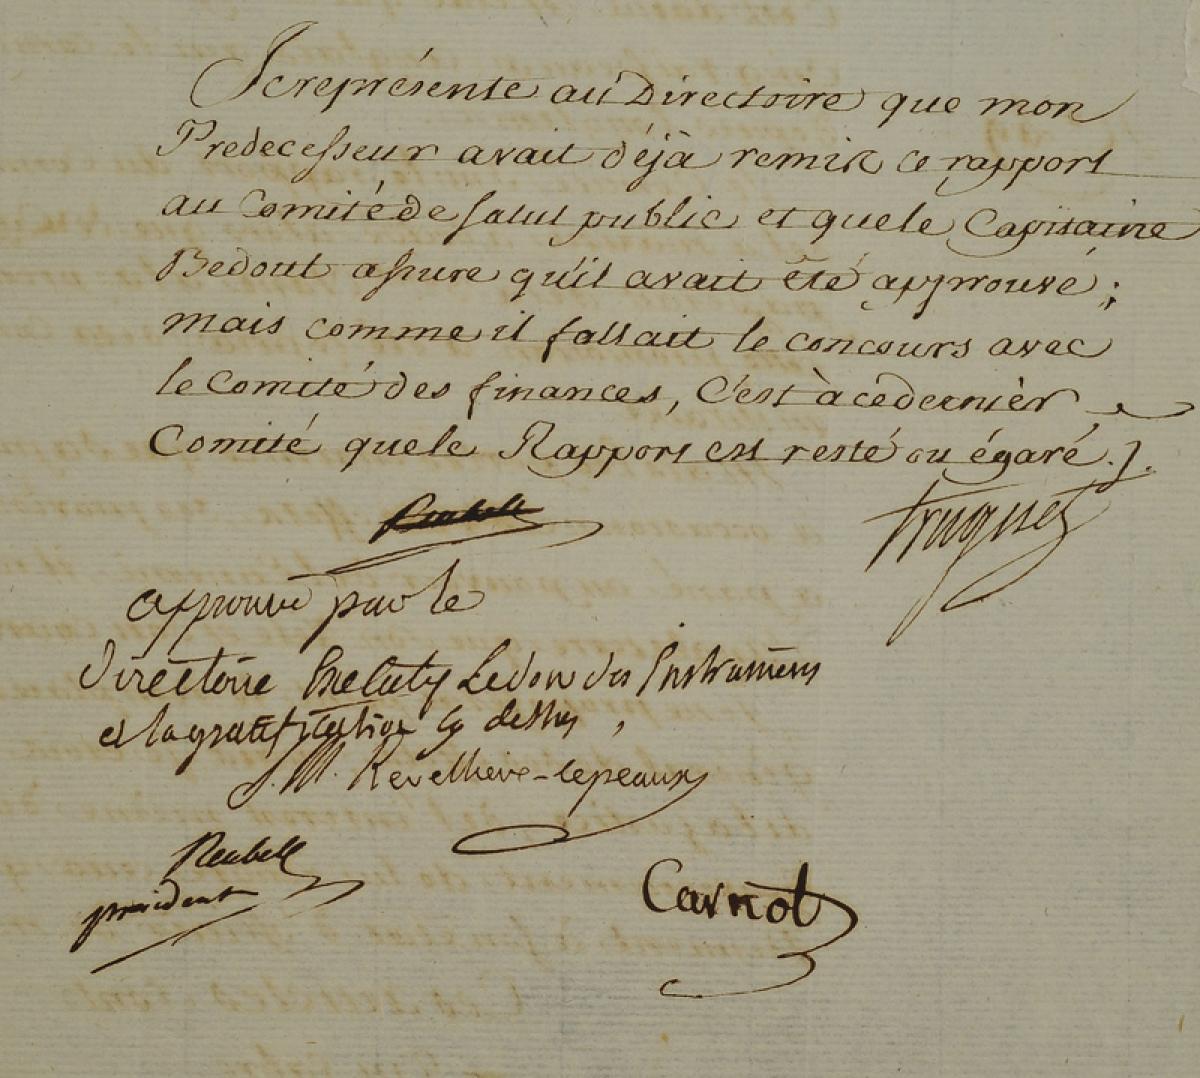 Je représente au Directoire que mon
Predecesseur avait déjà remis ce rapport
au Comité de salut public et que le Capitaine
Bedout assure qu'il avait été approuvé ;
mais comme il fallait le concours avec
le Comité des finances, C'est à ce dernier
Comité que le Rapport est resté ou égaré ./.
Truguet
Reubell
approuvé par le
Directoire Le don des Instrumens
et la gratification cy dessus ,
J. M. Revelliere-lepeaux
Reubell
président
Carnot